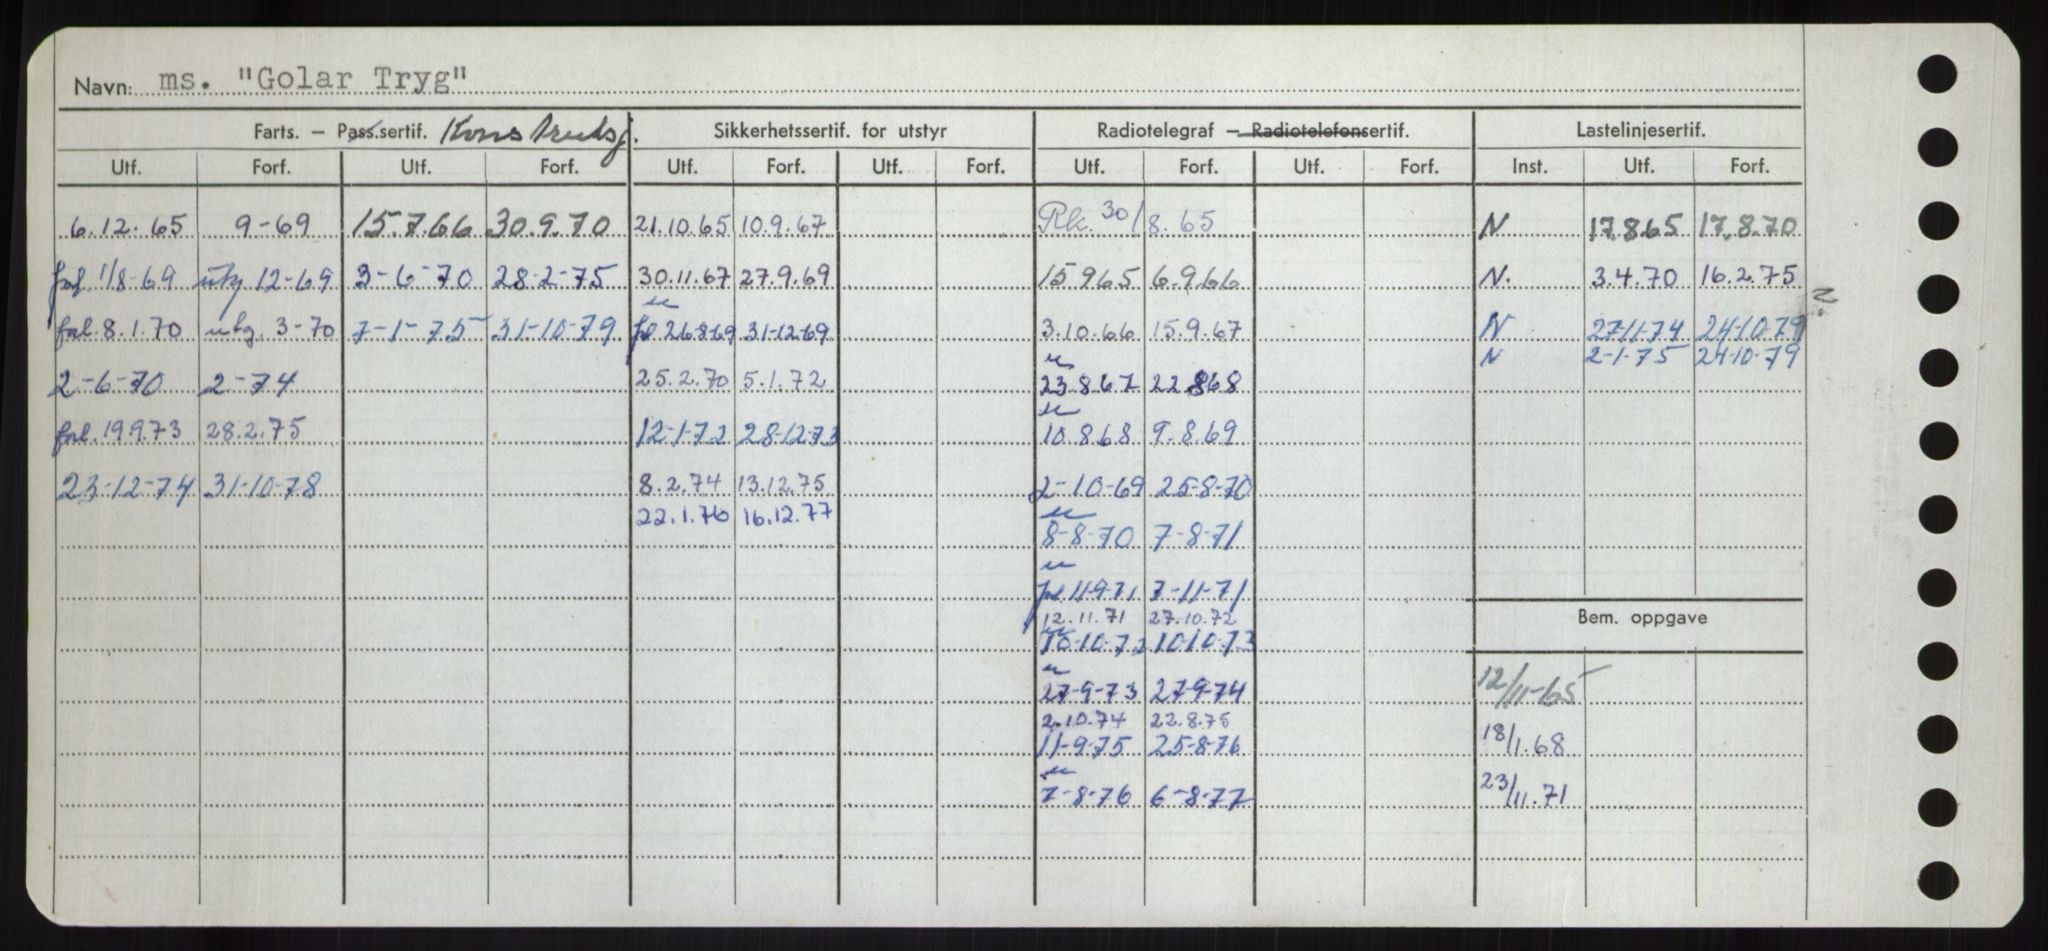 Navn: ms. "Golar Tryg"
Farts. – Pass.sertif. Konstruksj. Sikkerhetssertif. for utstyr Radiotelegraf – Radiotelefonsertif. Lastelinjesertif.
Utf. Forf. Utf. Forf. Utf. Forf. Utf. Forf. Utf. Forf. Utf. Forf. Inst. Utf. Forf.
6.12.65 9-69 15.7.66 30.9.70 21.10.65 10.9.67 Rk. 30/8.65 N 17.8.65 17.8.70
forl. 1/8-69 utg 12-69 3-6-70 28-2-75 30.11.67 27.9.69 15 9.65 6.9.66 N. 3.4.70 16.2.75
forl. 8.1.70 utg. 3-70 7-1-75 31-10-79 26-8-69 31-12-69 3.10.66 15.9.67 N 27-11-74 24-10-79
N 2-1-75 24-10-79
2-6-70 2-74 25.2.70 5.1.72 23.8.67 22.8.68
forl. 19.9.73 28.2.75 12-1-72 28-12-73 10.8.68 9.8.69
23-12-74 31-10-78 8.2.74 13.12.75 2-10-69 25-8-70
22.1.76 16.12.77
8-8-70 7-8-71
11-9-71 7-11-71
12.11.71 27.10.72
Bem. oppgave
10-10-72 10-10-73
27-9-73 27-9-74 12/11-65
2.10.74 22.8.75
11-9-75 25-8-76 18/1.68
7-8-76 6-8-77 23/11.71